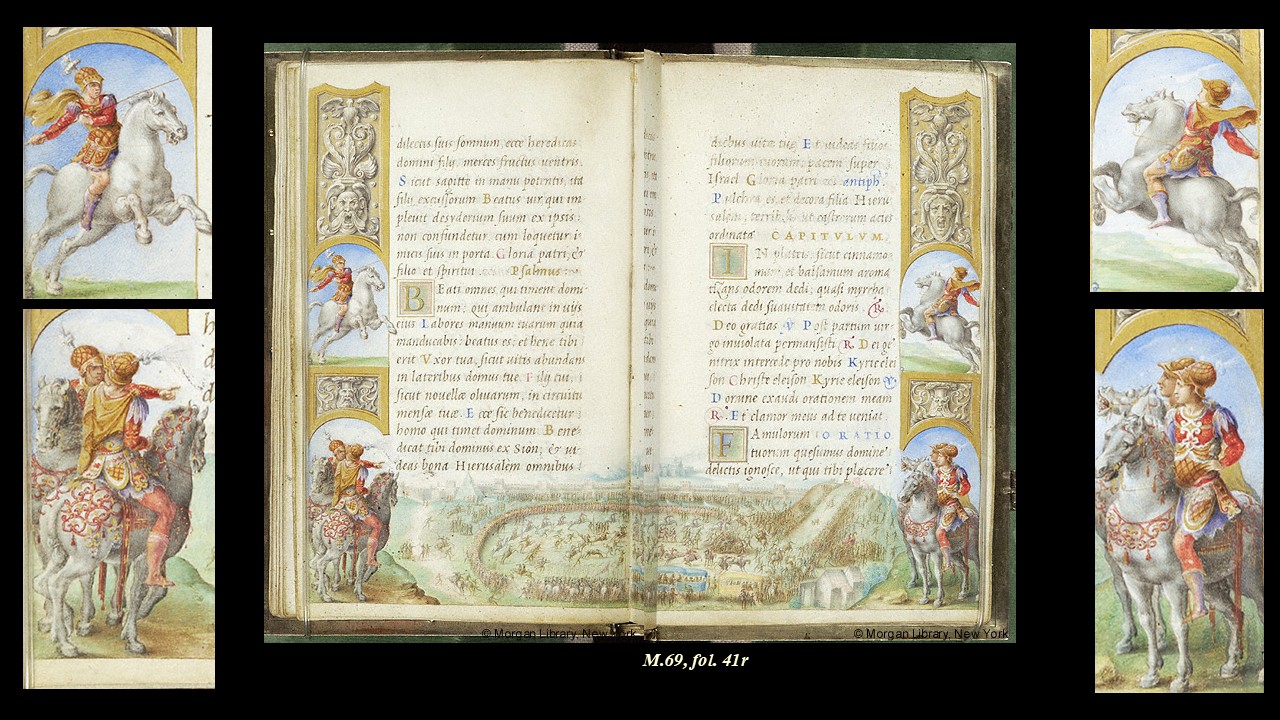 dilectis suis somnum, ecce hereditas
domini filij, merces fructus ventris.
Sicut sagitte in manu potentis, ita
filij excussorum Beatus vir qui im
pleuit desyderium suum ex ipsis:
non confundetur cum loquetur i
micis suis in porta. Gloria patri, &
filio et spiritui Psalmus
Beati omnes qui timent domi
num: qui ambulant in vijs
eius Labores manuum tuarum quia
manducabis: beatus es: et bene tibi
erit Vxor tua, sicut vitis abundans
in lateribus domus tue. Filij tui,
sicut nouellæ oliuarum, in circuitu
mensæ tuæ. Ecce sic benedicetur
homo qui timet dominum Bene
dicat tibi dominus ex Sion, & vi
deas bona Hierusalem omnibus
diebus vitæ tuę Et videas filios
filiorum tuorum, pacem super
Israel Gloria patri antiph.
Pulchra es et decora filia Hieru
salem, terribilis ut castrorum acies
ordinata CAPITVLVM.
IN plateis sicut cinnamo
mum et balsamum aroma
tizans odorem dedi, quasi myrrha
electa dedi suauitatem odoris. R.
Deo gratias V Post partum vir
go inuiolata permansisti R. Dei ge
nitrix intercede pro nobis Kyrie elei
son Christe eleison Kyrie eleison V
Domine exaudi orationem meam
R. Et clamor meus ad te veniat.
Famulorum ORATIO
tuorum quesumus domine
delictis ignosce, ut qui tibi placere
© Morgan Library, New York
© Morgan Library, New York
M.69, fol. 41r